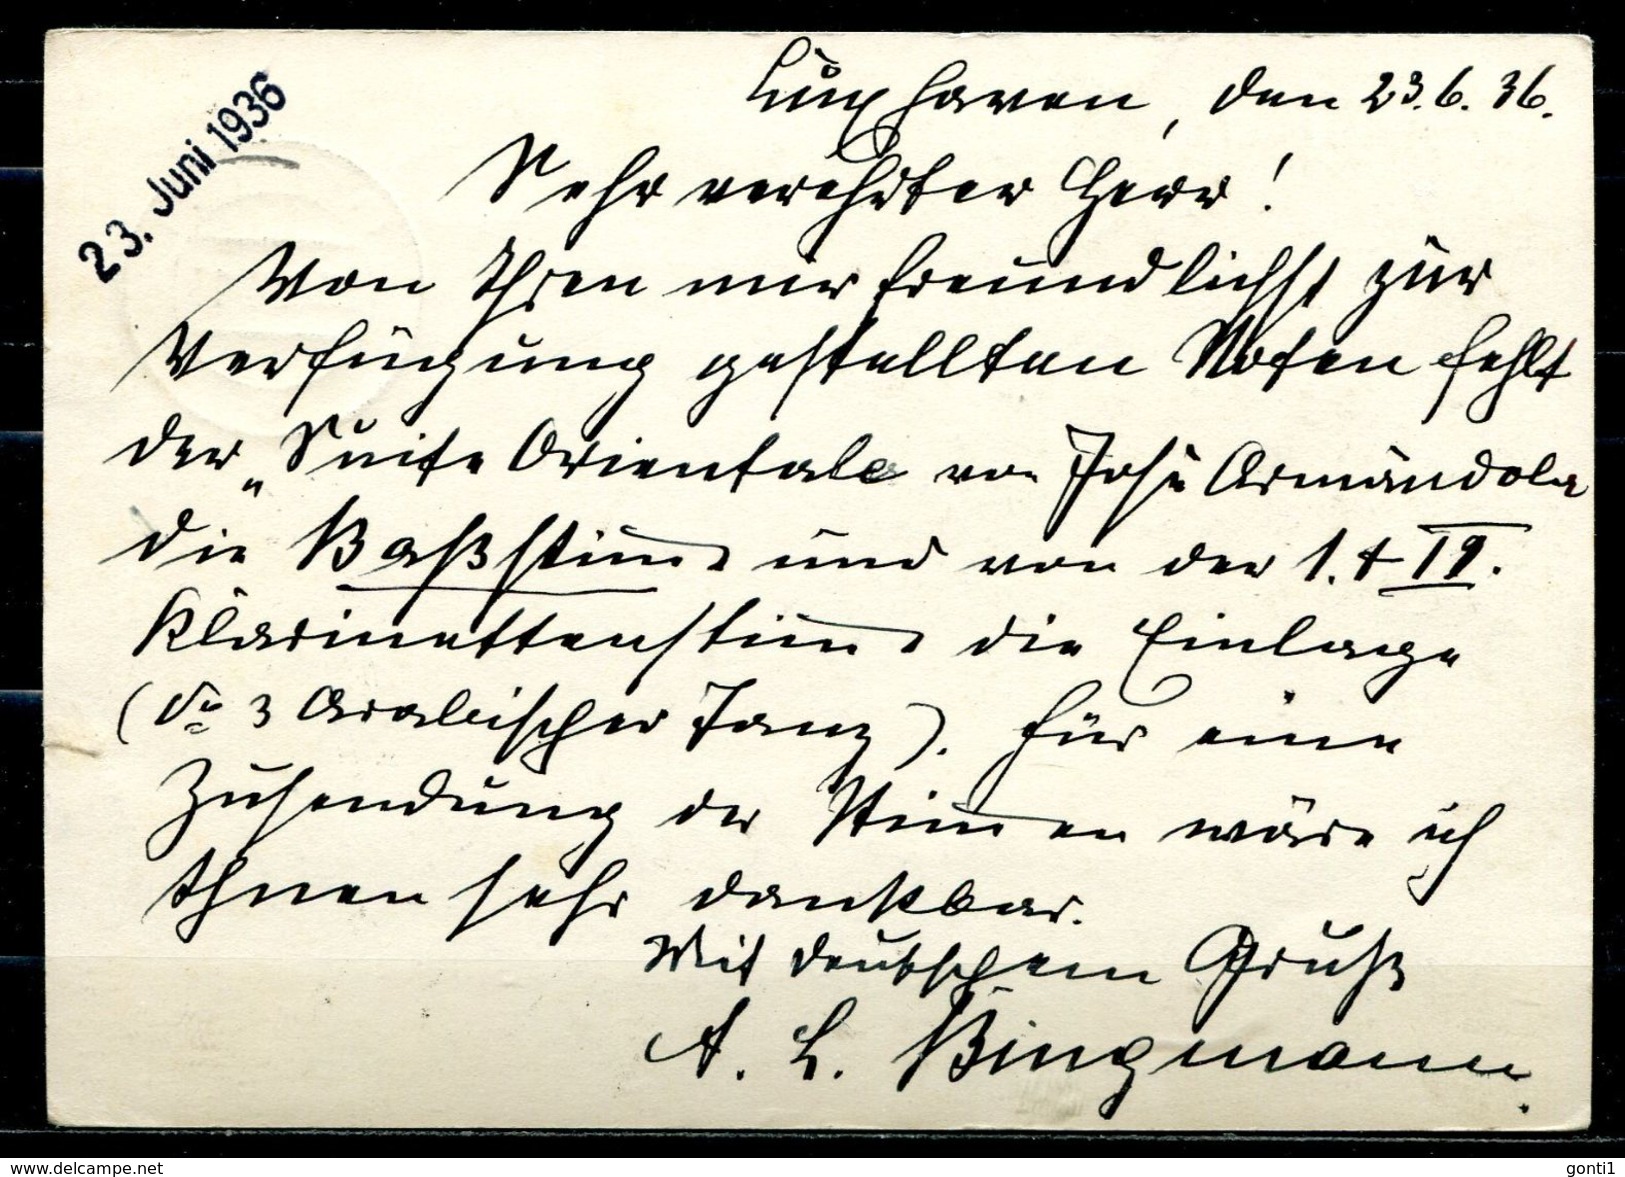 23. Juni 1936
Cuxhaven, den 23.6.36.
Sehr verehrter Herr!
Von Ihren mir freundlichst zur
Verfügung gestellten Noten fehlt
der „Suite Orientale von José Armandola
die Baßstimme und von der 1. + II.
Klarinettenstimme die Einlage
(No 3 Arabischer Tanz). Für eine
Zusendung der Stimmen wäre ich
Ihnen sehr dankbar.
Mit deutschem Gruß
A. L. Bingmann.
www.delcampe.net
gonti1